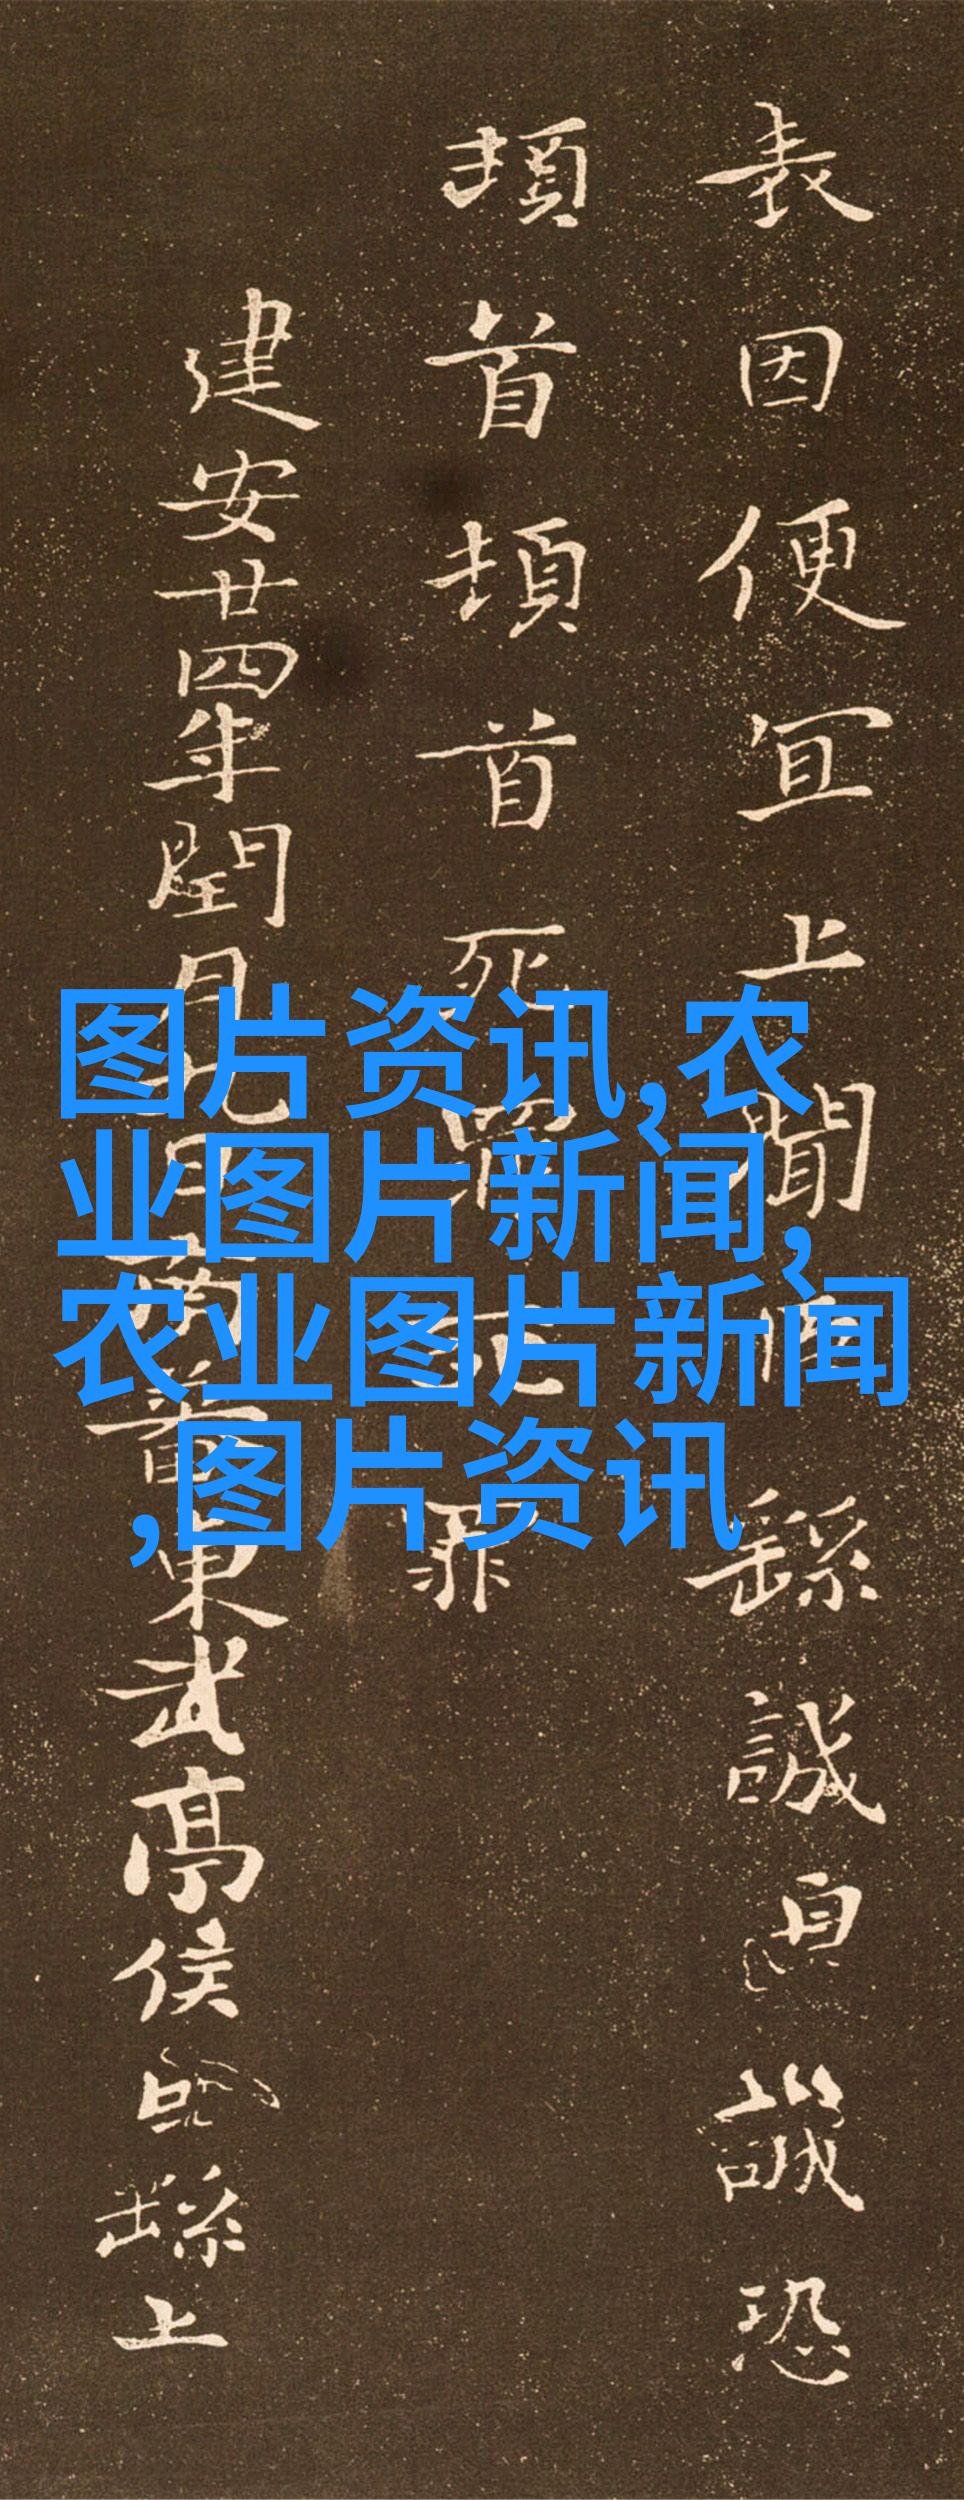 表因便宜上聞臣繇誠皇誠恐
頓首頓首死罪死罪
建安廿四年閏月九日南蕃東武亭侯臣繇上
图片资讯,农
业图片新闻,
农业图片新闻
,图片资讯